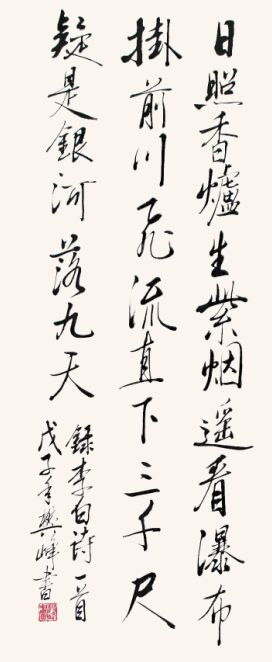 日照香爐生紫烟遥看瀑布
掛前川飛流直下三千尺
疑是銀河落九天
録李白詩一首
戊子年樊峰書